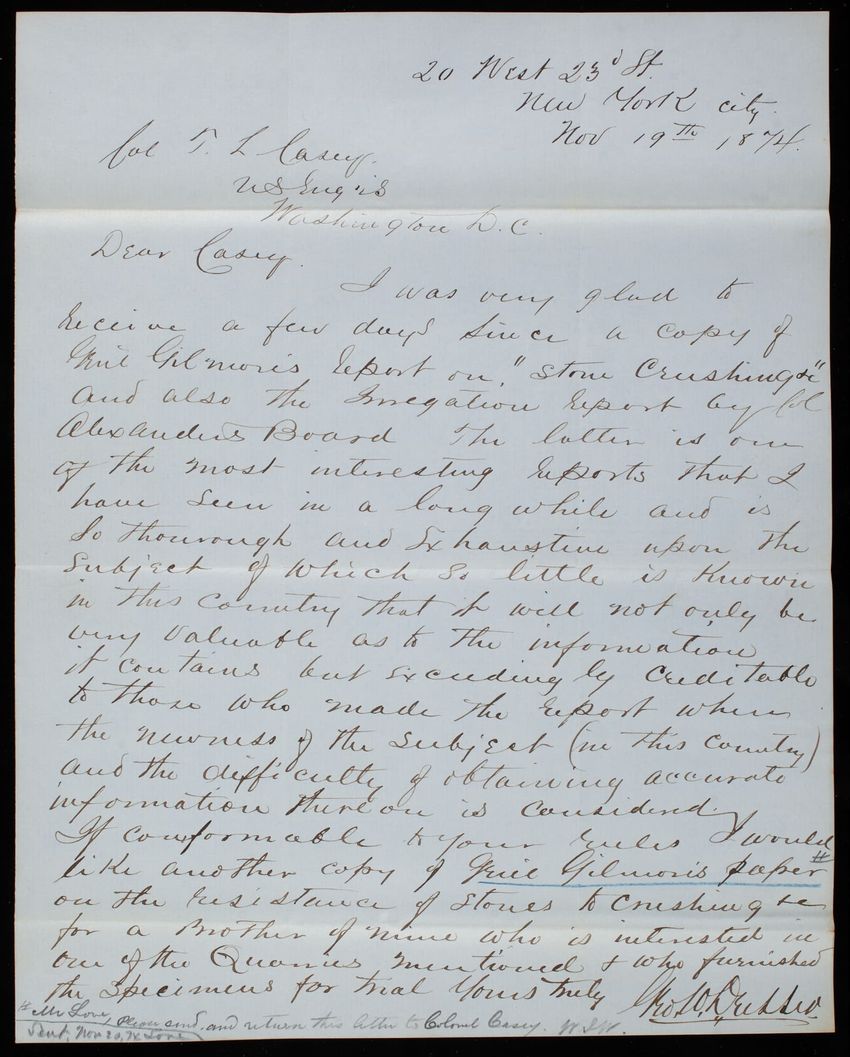 20 West 23d St.
New York city.
Nov 19th 1874.
Col T. L Casey.
US Eng'rs
Washington D.C.
Dear Casey.
I was very glad to
receive a few days since a copy of
Genl Gilmore's Report on "Stone Crushing &c"
and also the Irregation Report by Col
Alexander's Board The latter is one
of the most interesting Reports that I
have seen in a long while and is
so thourough and Exhaustive upon the
Subject of which so little is Known
in this Country that it will not only be
very Valuable as to the information
it contains but exceedingly Creditable
to those who made the Report when
the newness of the Subject (in this Country)
and the difficulty of obtaining accurate
information thereon is considered.
If conformable to your rules I would
like another copy of Genl Gilmore's paper #
on the Resistance of Stones to Crushing &c
for a Brother of mine who is interested in
one of the Quarries mentioned & who furnished
the Specimens for trial Yours truly
# Mr Love, Please send, and return this letter to Colonel Casey.
Sent, Nov 20, 74 Love